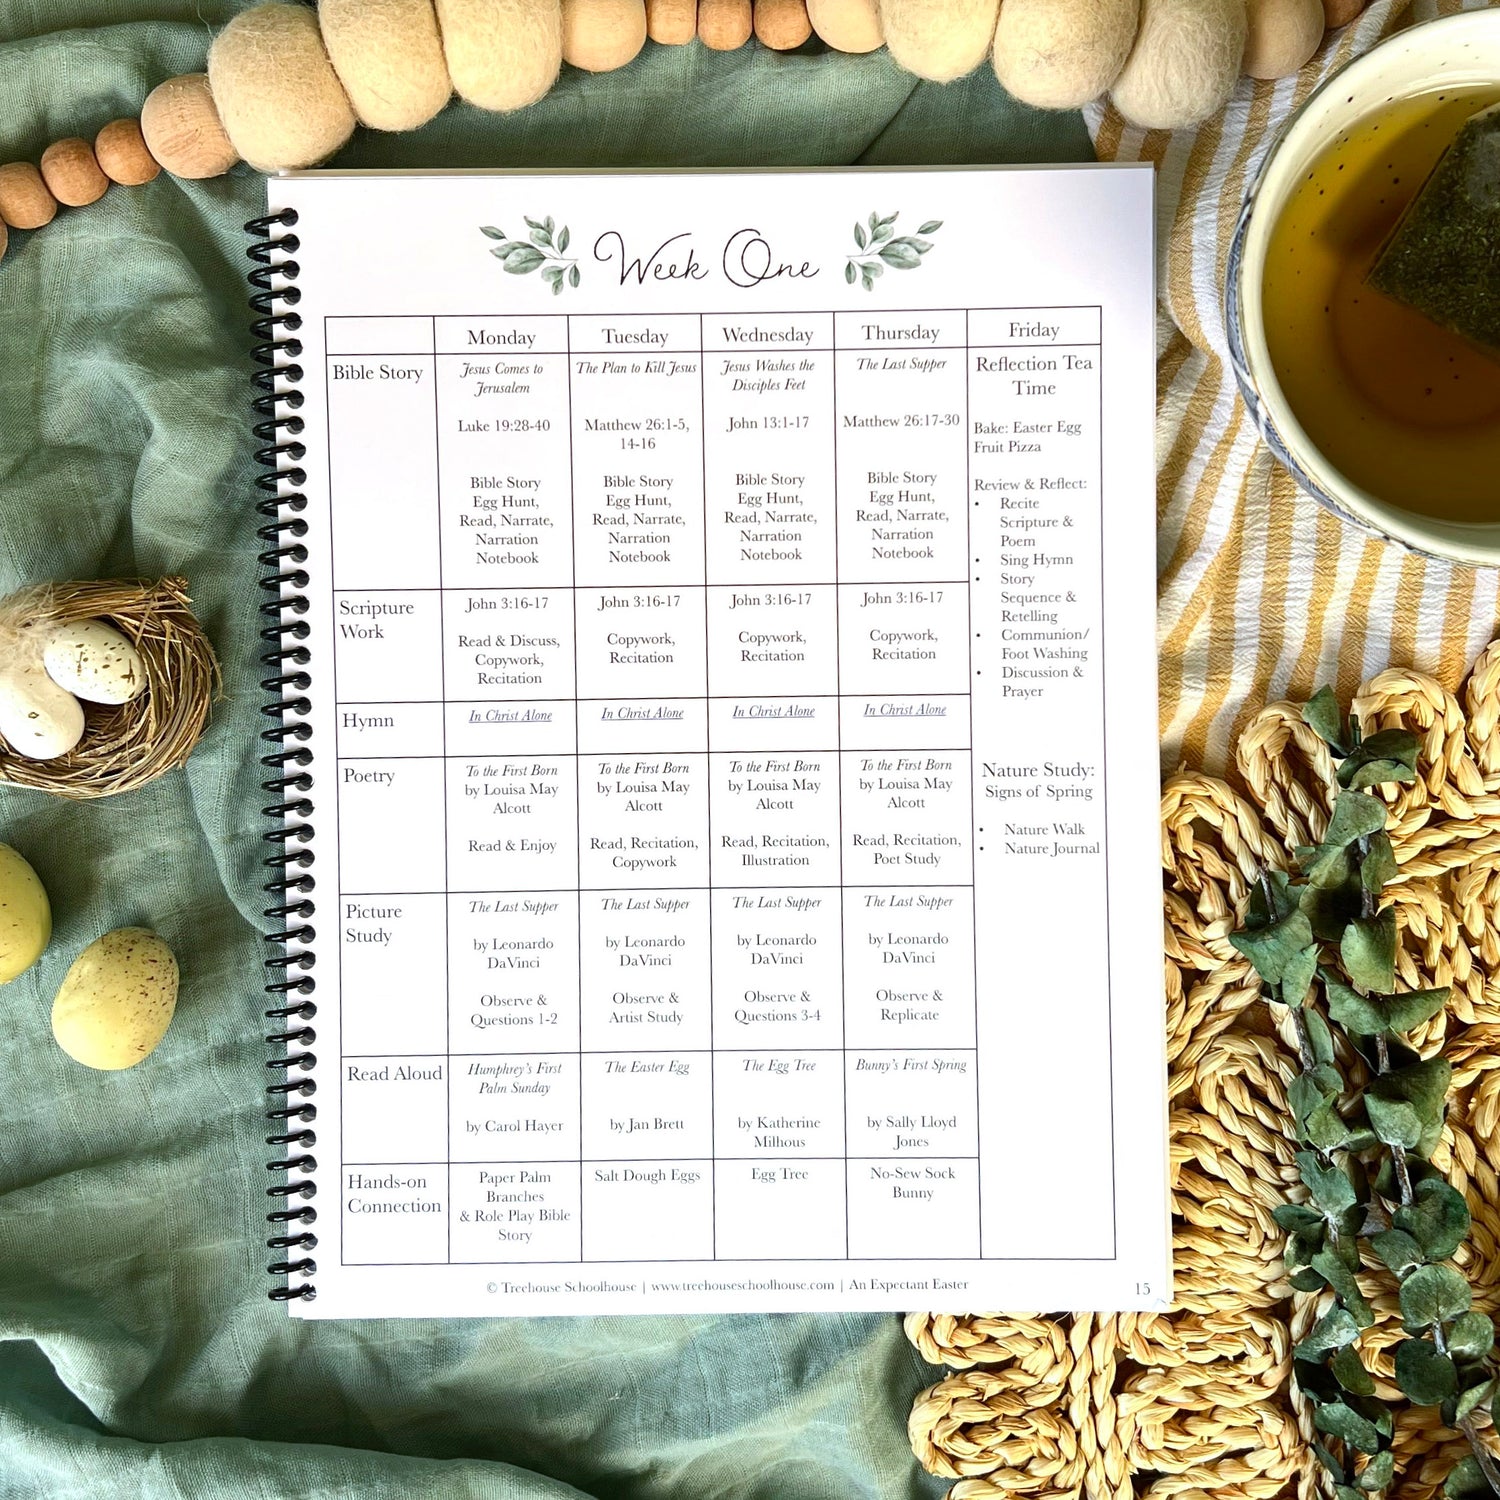 Week One
Monday
Tuesday
Wednesday
Thursday
Friday
Bible Story
Jesus Comes to
Jerusalem
Luke 19:28-40
Bible Story
Egg Hunt,
Read, Narrate,
Narration
Notebook
The Plan to Kill Jesus
Matthew 26:1-5,
14-16
Bible Story
Egg Hunt,
Read, Narrate,
Narration
Notebook
Jesus Washes the
Disciples Feet
John 13:1-17
Bible Story
Egg Hunt,
Read, Narrate,
Narration
Notebook
The Last Supper
Matthew 26:17-30
Bible Story
Egg Hunt,
Read, Narrate,
Narration
Notebook
Reflection Tea
Time
Bake: Easter Egg
Fruit Pizza
Review & Reflect:
• Recite
Scripture &
Poem
• Sing Hymn
• Story
Sequence &
Retelling
• Communion/
Foot Washing
• Discussion &
Prayer
Nature Study:
Signs of Spring
• Nature Walk
• Nature Journal
Scripture
Work
John 3:16-17
Read & Discuss,
Copywork,
Recitation
John 3:16-17
Copywork,
Recitation
John 3:16-17
Copywork,
Recitation
John 3:16-17
Copywork,
Recitation
Hymn
In Christ Alone
In Christ Alone
In Christ Alone
In Christ Alone
Poetry
To the First Born
by Louisa May
Alcott
Read & Enjoy
To the First Born
by Louisa May
Alcott
Read, Recitation,
Copywork
To the First Born
by Louisa May
Alcott
Read, Recitation,
Illustration
To the First Born
by Louisa May
Alcott
Read, Recitation,
Poet Study
Picture
Study
The Last Supper
by Leonardo
DaVinci
Observe &
Questions 1-2
The Last Supper
by Leonardo
DaVinci
Observe &
Artist Study
The Last Supper
by Leonardo
DaVinci
Observe &
Questions 3-4
The Last Supper
by Leonardo
DaVinci
Observe &
Replicate
Read Aloud
Humphrey's First
Palm Sunday
by Carol Hayer
The Easter Egg
by Jan Brett
The Egg Tree
by Katherine
Milhous
Bunny's First Spring
by Sally Lloyd
Jones
Hands-on
Connection
Paper Palm
Branches
& Role Play Bible
Story
Salt Dough Eggs
Egg Tree
No-Sew Sock
Bunny
© Treehouse Schoolhouse | www.treehouseschoolhouse.com | An Expectant Easter
15